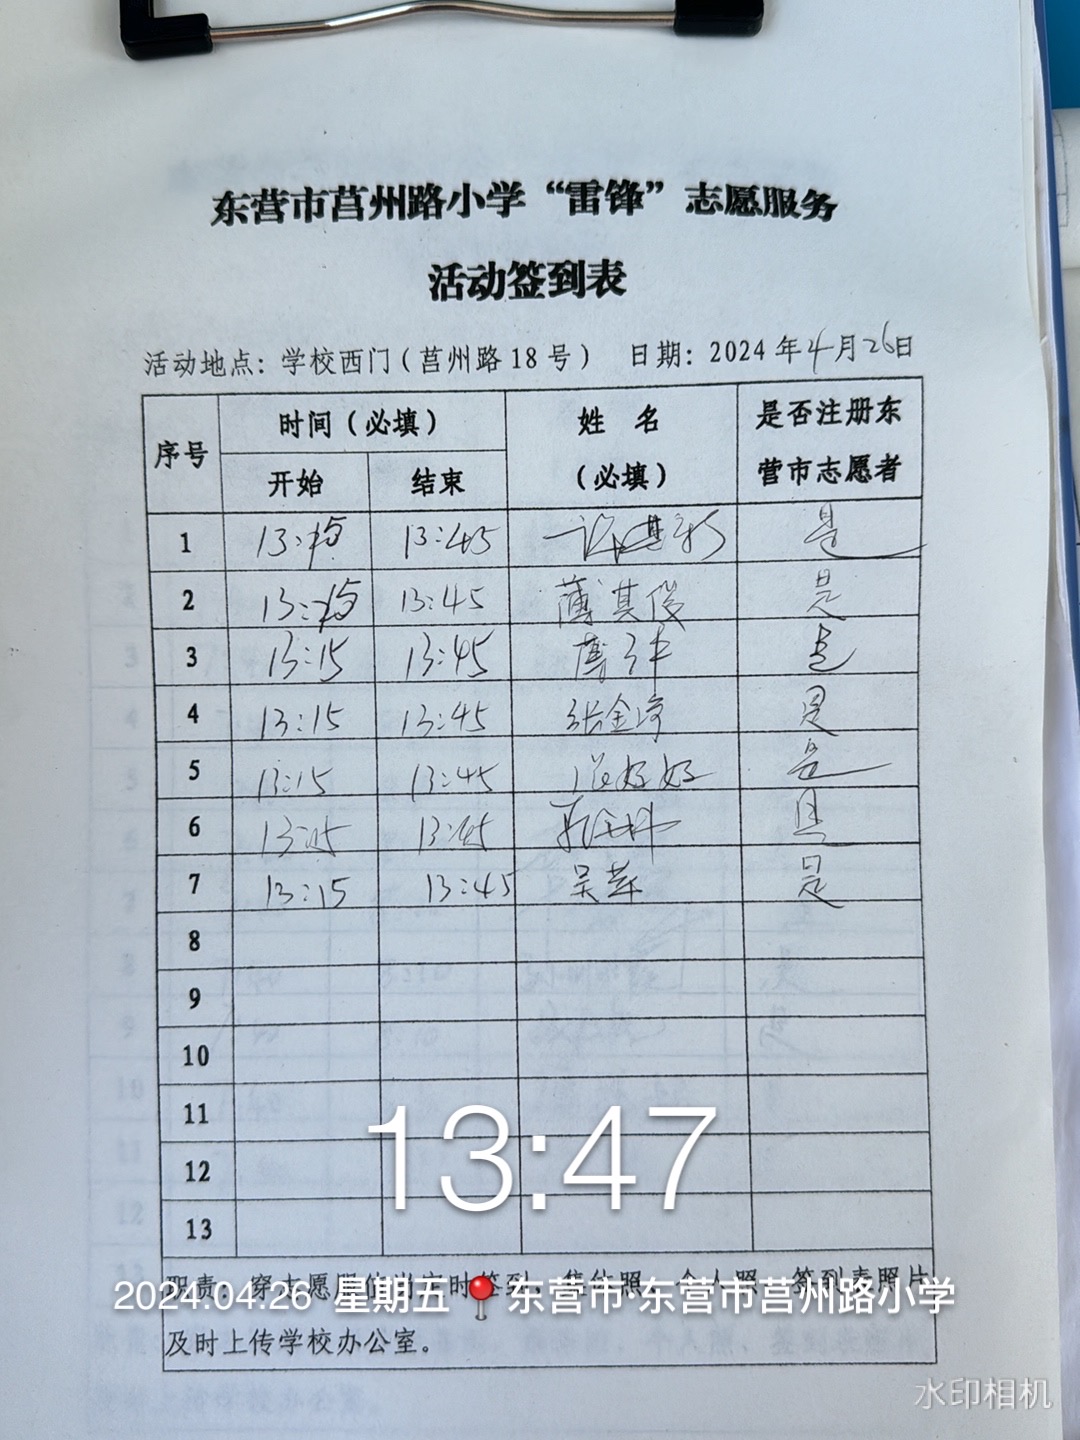 东营市莒州路小学“雷锋”志愿服务
活动签到表
活动地点：学校西门（莒州路18号） 日期：2024年4月26日
序号 时间（必填） 姓 名（必填） 是否注册东营市志愿者
开始 结束
1 13:15 13:45 是
2 13:15 13:45 薄其俊 是
3 13:15 13:45 是
4 13:15 13:45 是
5 13:15 13:45 是
6 13:15 13:45 是
7 13:15 13:45 吴苹 是
8
9
10
11
12
13
13:47
职责：穿志愿服 签到、集体照、个人照、签到表照片
2024.04.26 星期五 东营市·东营市莒州路小学
及时上传学校办公室。
水印相机